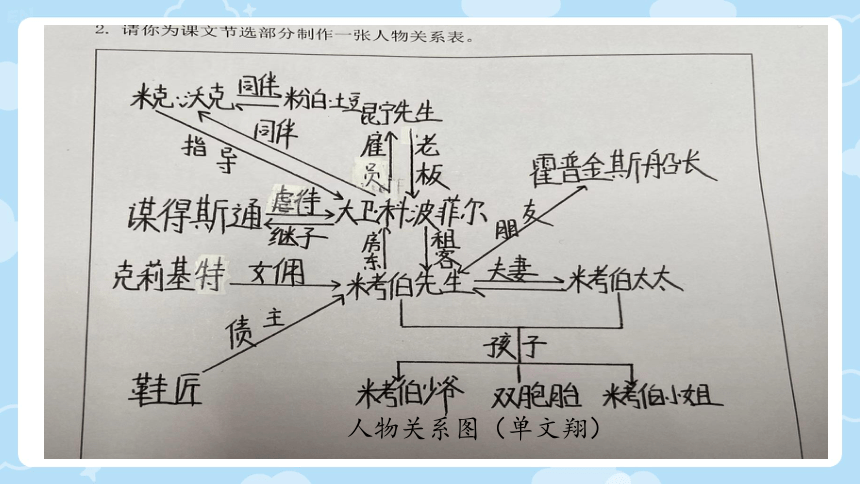 2. 请你为课文节选部分制作一张人物关系表。
米克·沃克 同伴 粉白·土豆 昆宁先生
同伴
指导
雇员 老板
霍普金斯船长
谋得斯通 虐待 大卫·科波菲尔
继子
朋友
房东 租客
克莉基特 女佣 米考伯先生 夫妻 米考伯太太
债主
孩子
鞋匠 米考伯少爷 双胞胎 米考伯小姐
人物关系图（单文翔）